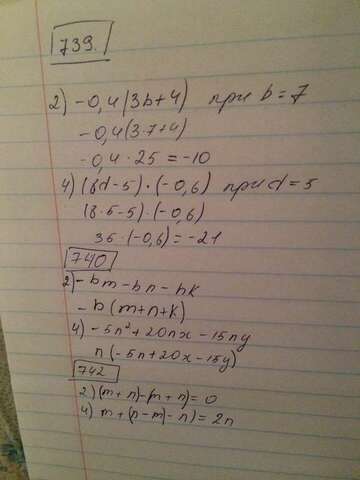 739.
2) -0,4(3b+4) при b=7
-0,4(3·7+4)
-0,4·25=-10
4) (8d-5)·(-0,6) при d=5
(8·5-5)·(-0,6)
35·(-0,6)=-21
740
2) -bm-bn-bk
-b(m+n+k)
4) -5n²+20nx-15ny
n(-5n+20x-15y)
742
2) (m+n)-(m+n)=0
4) m+(n-m)-n)=2n